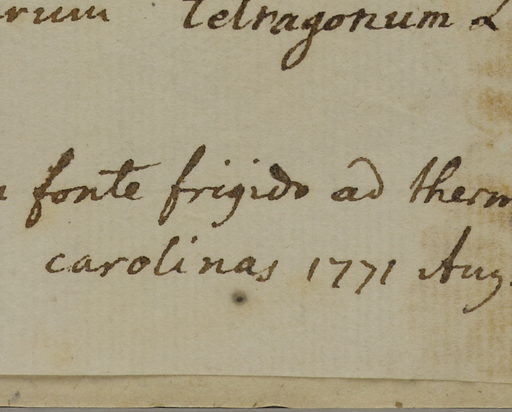 rum tetragonum L
fonte frigido ad therm
carolinas 1771 Aug.